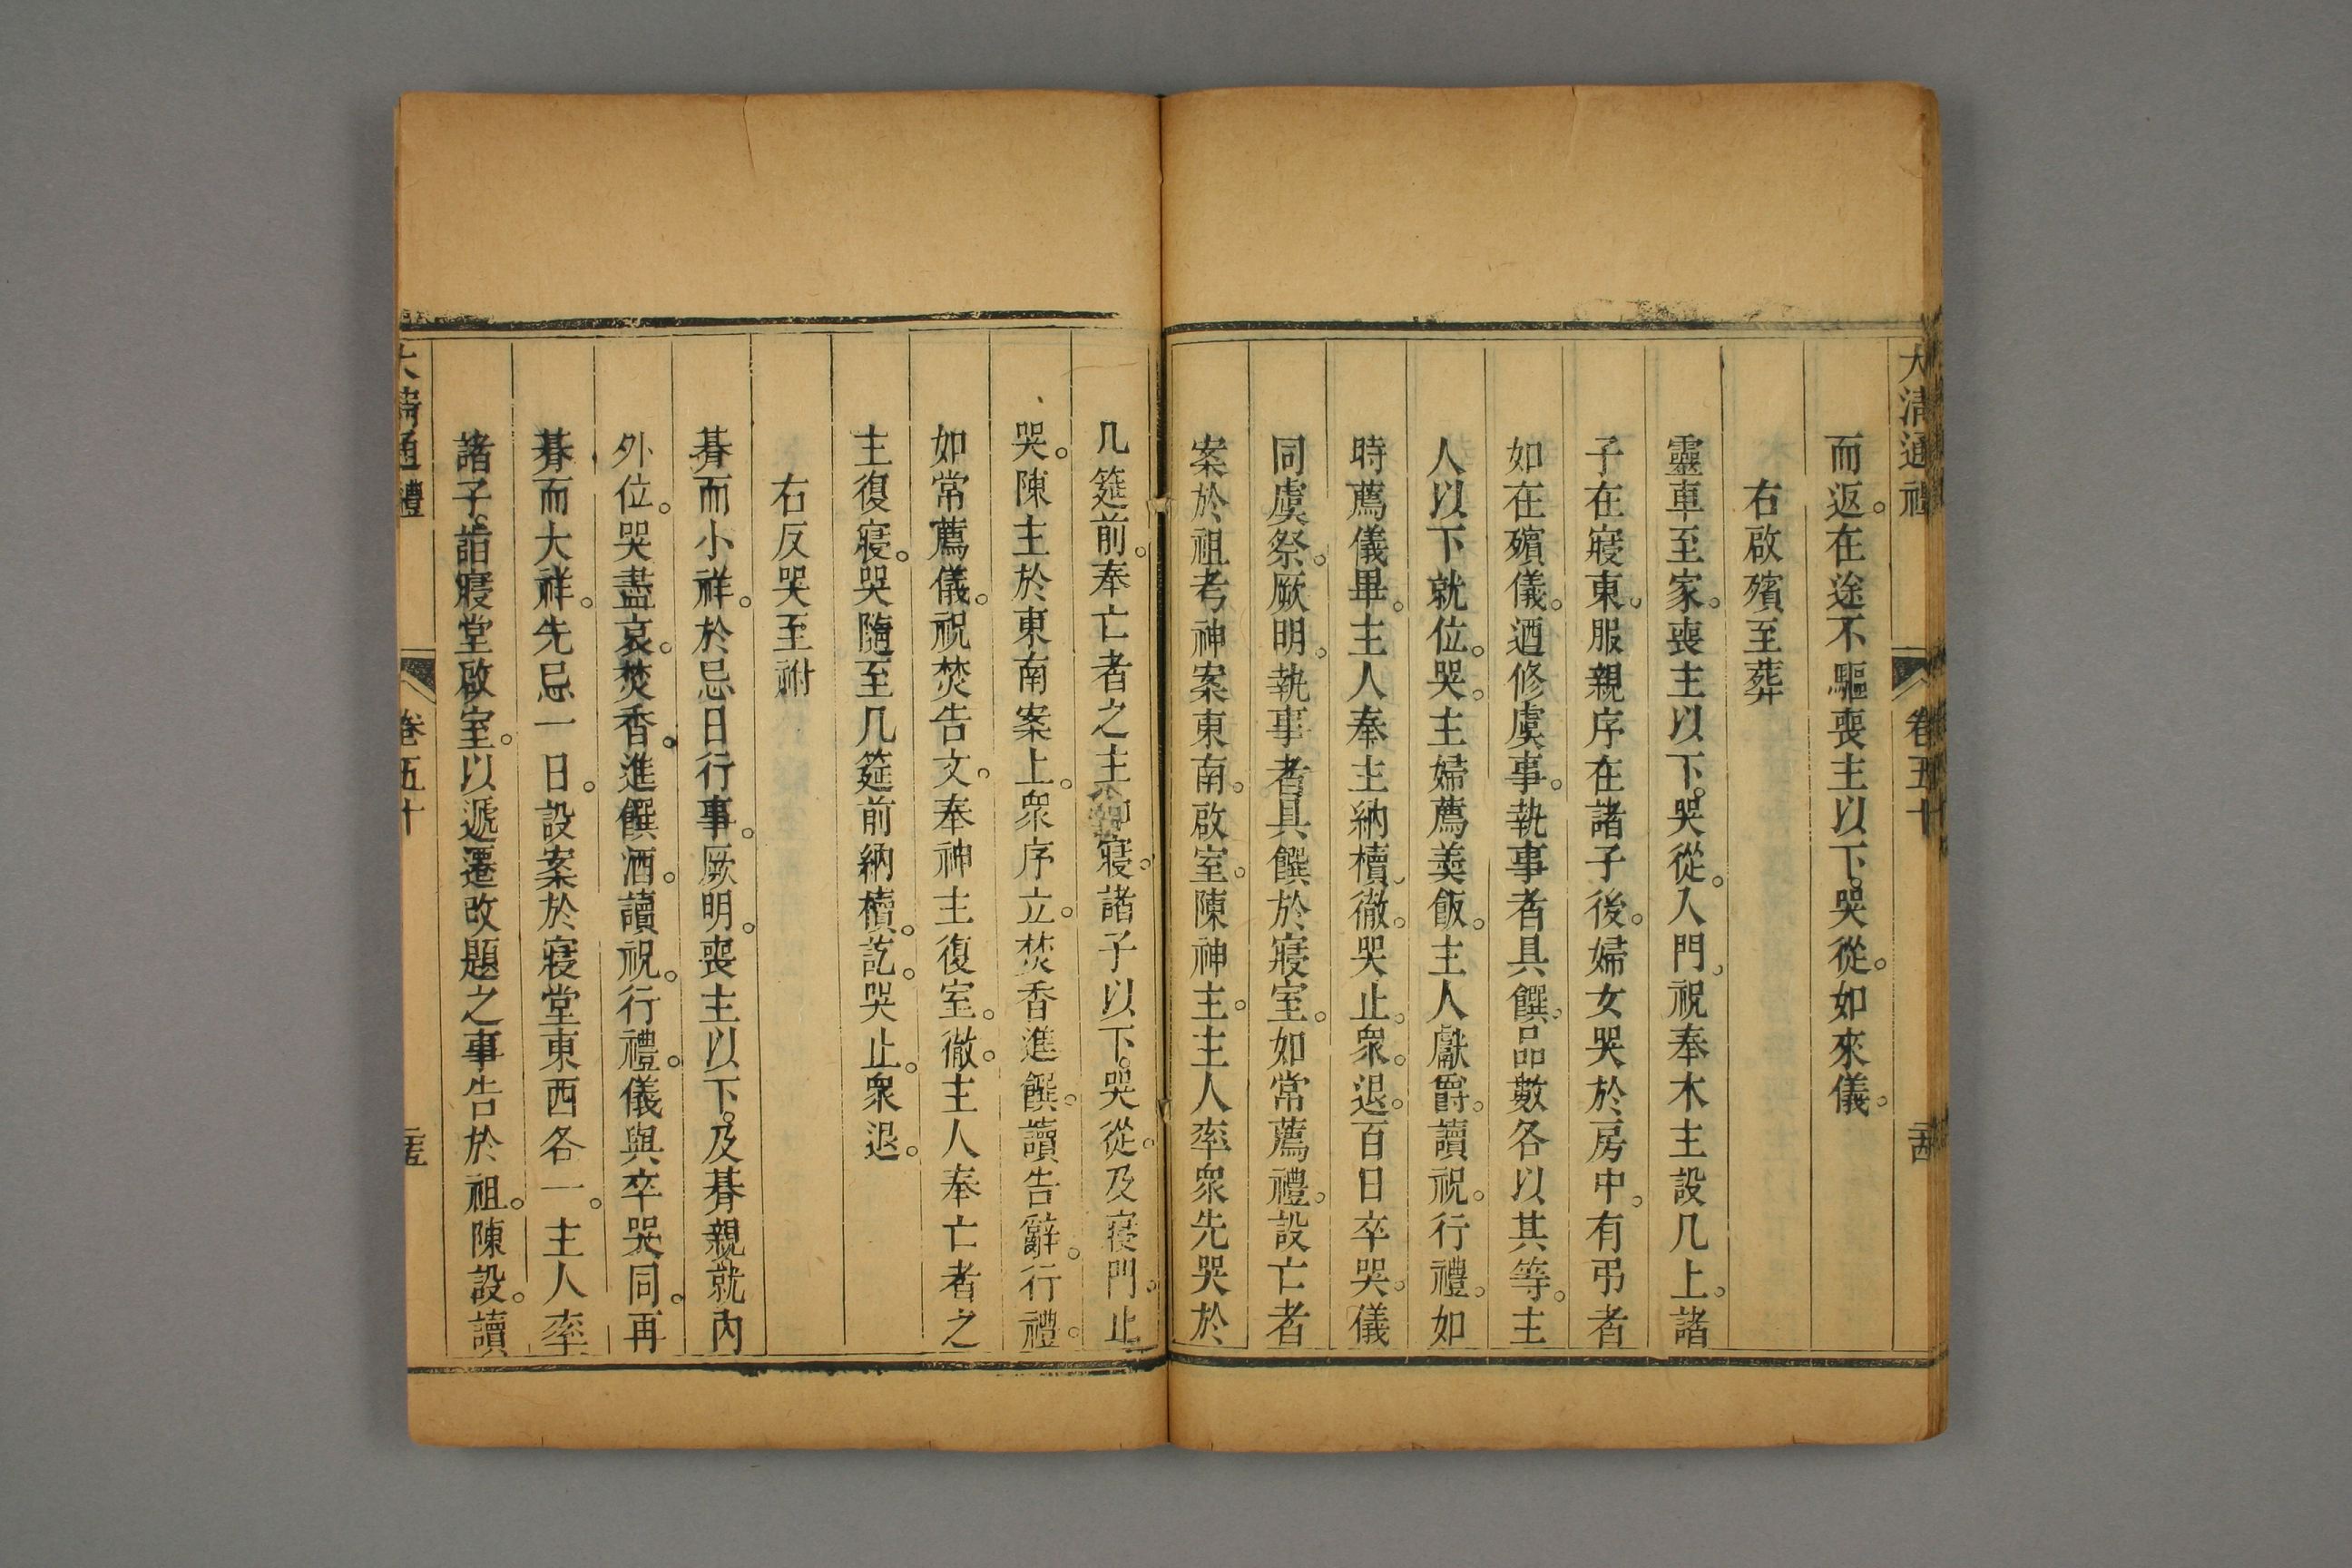 大清通禮 卷五十 二十四
而返。在途不驅喪主以下。哭從。如來儀。
右啟殯至葬
靈車至家。喪主以下。哭從。入門。祝奉木主設几上。諸
子在寢東。服親序在諸子後。婦女哭於房中。有弔者
如在殯儀。迺修虞事。執事者具饌。品數各以其等。主
人以下就位。哭。主婦薦羹飯。主人獻爵。讀祝。行禮。如
時薦儀畢。主人奉主納櫝。徹。哭止。衆。退。百日卒哭。儀
同虞祭。厥明。執事者具饌於寢室。如常薦禮。設亡者
案於祖考神案東南。啟室。陳神主。主人率衆先哭於
几筵前。奉亡者之主寢。諸子以下。哭從。及寢門。止
哭。陳主於東南案上。衆序立。焚香進饌。讀告辭。行禮。
如常薦儀。祝焚告文。奉神主復室。徹。主人奉亡者之
主復寢。哭隨至几筵前納櫝。訖。哭止。衆退。
右反哭至祔
朞而小祥。於忌日行事。厥明。喪主以下。及朞親就內
外位。哭盡哀。焚香。進饌酒。讀祝。行禮。儀與卒哭同。再
朞而大祥。先忌一日。設案於寢堂東西各一。主人率
諸子。詣寢堂啟室。以遞遷改題之事告於祖。陳設。讀
大清通禮 卷五十 二十五